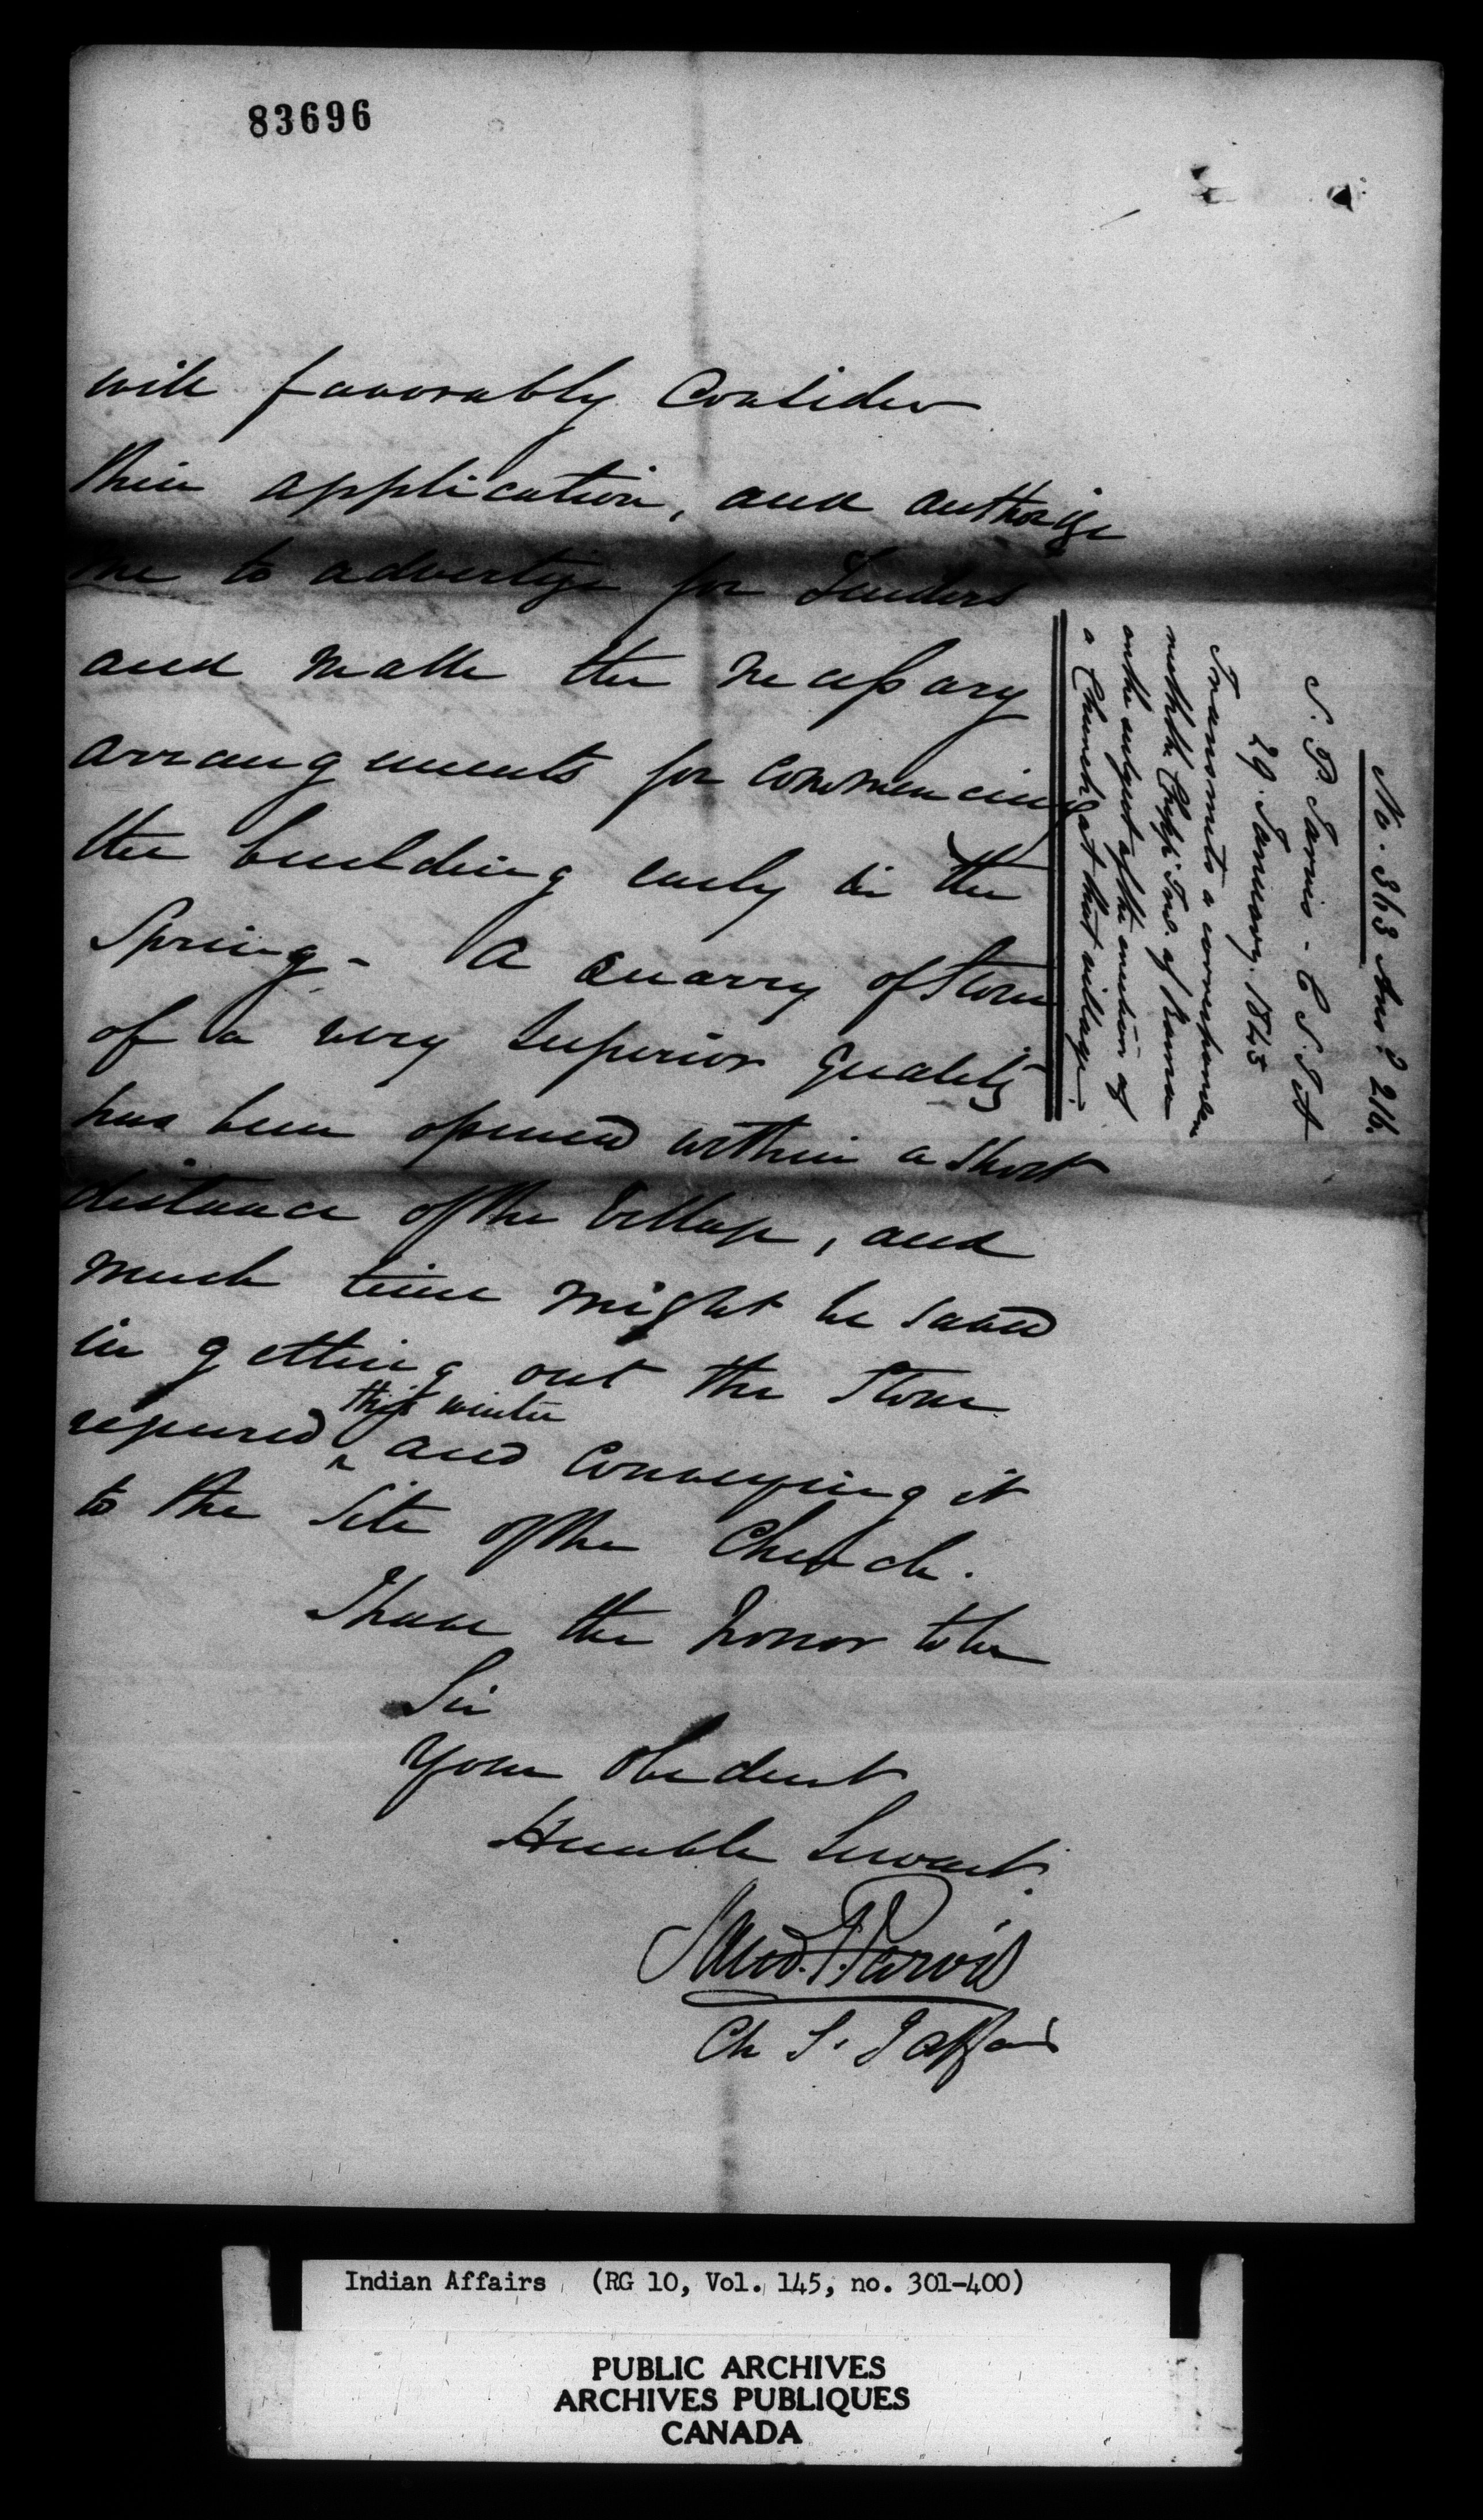 83696
will favorably Consider
their application, and authorize
me to advertize for Tenders
and make the necessary
arrangements for commencing
the building early in the
Spring. - A Quarry of Stone
of a very superior quality
has been opened within a short
distance of the Village, and
much time might be saved
in getting out the Stone
required this winter and conveying it
to the Site of the Church.
I have the honor to be
Sir
Your obedient
Humble Servant.
Saml. P. Jarvis
Ch S. I Affairs
No. 363 Ansd 216.
S. P. Jarvis - C. S. I A
29. January. 1845
Transmits a correspondence
with the Chipp. Inds. of Rama
on the subject of the erection of
a Church at that village.
Indian Affairs (RG 10, Vol. 145, no. 301-400)
PUBLIC ARCHIVES
ARCHIVES PUBLIQUES
CANADA